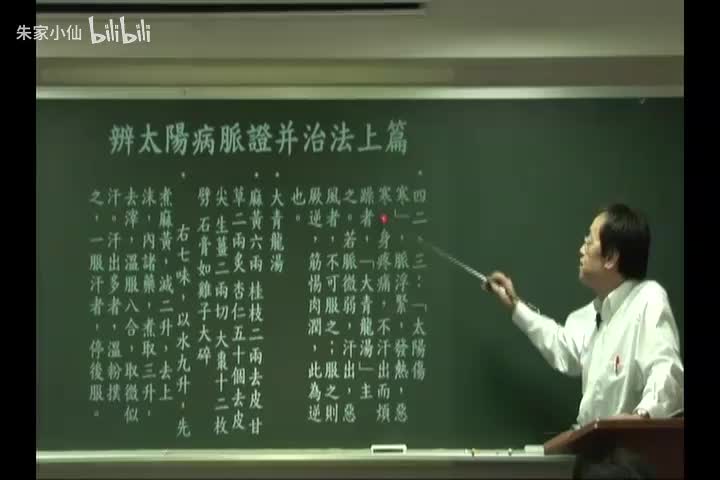 朱家小仙 bilibili
辨太陽病脈證并治法上篇
・四二，三：「太陽傷
寒」，脈浮緊，發熱，惡
寒，身疼痛，不汗出而煩
躁者，「大青龍湯」主
之。若脈微弱，汗出，惡
風者，不可服之；服之則
厥逆，筋惕肉潤，此為逆
也。
・大青龍湯
・麻黃六兩 桂枝二兩去皮 甘
草二兩炙 杏仁五十個去皮
尖 生薑二兩切 大棗十二枚
劈 石膏如雞子大碎
・ 右七味，以水九升，先
煮麻黃，減二升，去上
沫，內諸藥，煮取三升，
去滓，溫服八合，取微似
汗。汗出多者，溫粉撲
之，一服汗者，停後服。